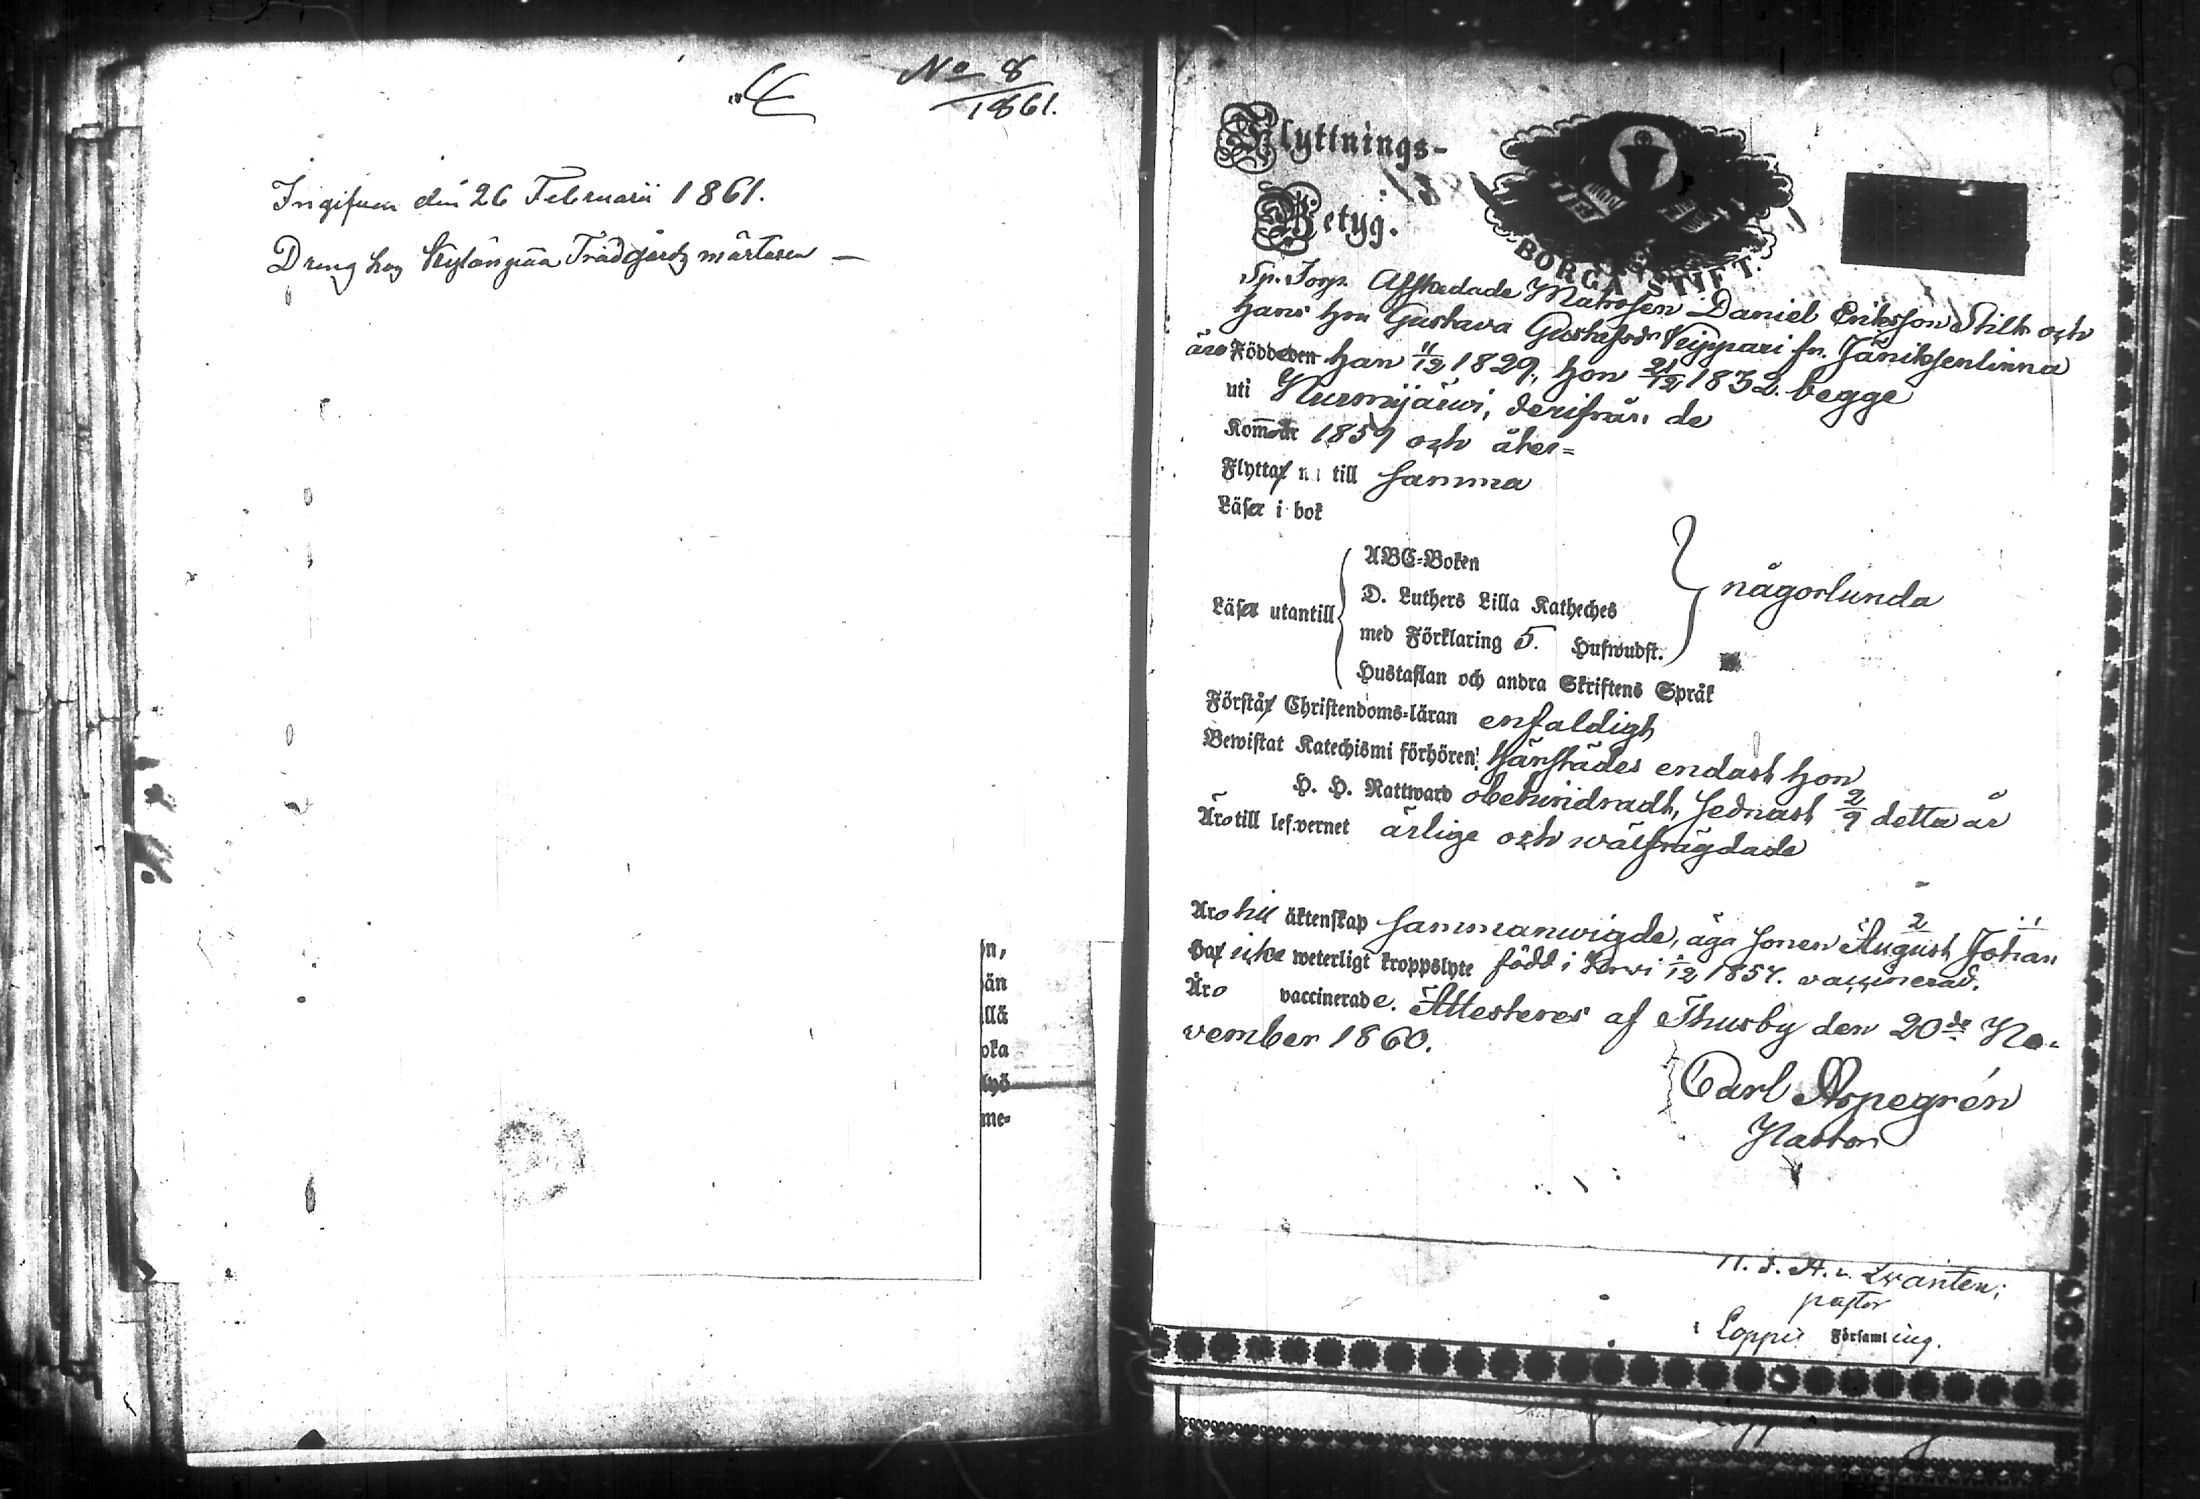 No 8
1861.
Ingifven den 26 Februarii 1861.
Dreng hos Trädgårdsmästaren —
Flyttnings-
Betyg.
BORGÅ STIFT.
Sp. Torp. Afskedade Matrosen Daniel Eriksson Stilt och
hans hu Gustava Gustafsdr Keippari fr. Jäniksenlinna
äro Födde den han 11/12 1829, hon 21/12 1832. begge
uti Nurmijärwi, derifrån de
Kommo 1859 och åter=
Flytta nu till samma
Läsa i bok
ABC-Boken
D. Luthers Lilla Katheches
Läsa utantill
med Förklaring 5. Hufwudst.
någorlunda
Hustaflan och andra Skriftens Språk
Förstå Christendoms-läran enfaldigt
Bewistat Katechismi förhören: härstädes endast hon
H. H. Nattward obehindradt, sednast 2/9 detta år
Äro till lefvernet ärlige och wälfrägdade
Äro till äktenskap sammanwigde, äga sonen August Johan
Ha icke weterligt kroppslyte född i 2/12 1857. vaccinerad.
Äro vaccinerade. Attesteres af Thusby den 20de No-
vember 1860.
Carl Aspegrén
Pastor
pastor
i Loppis Församling.
än
llä
oka
me-